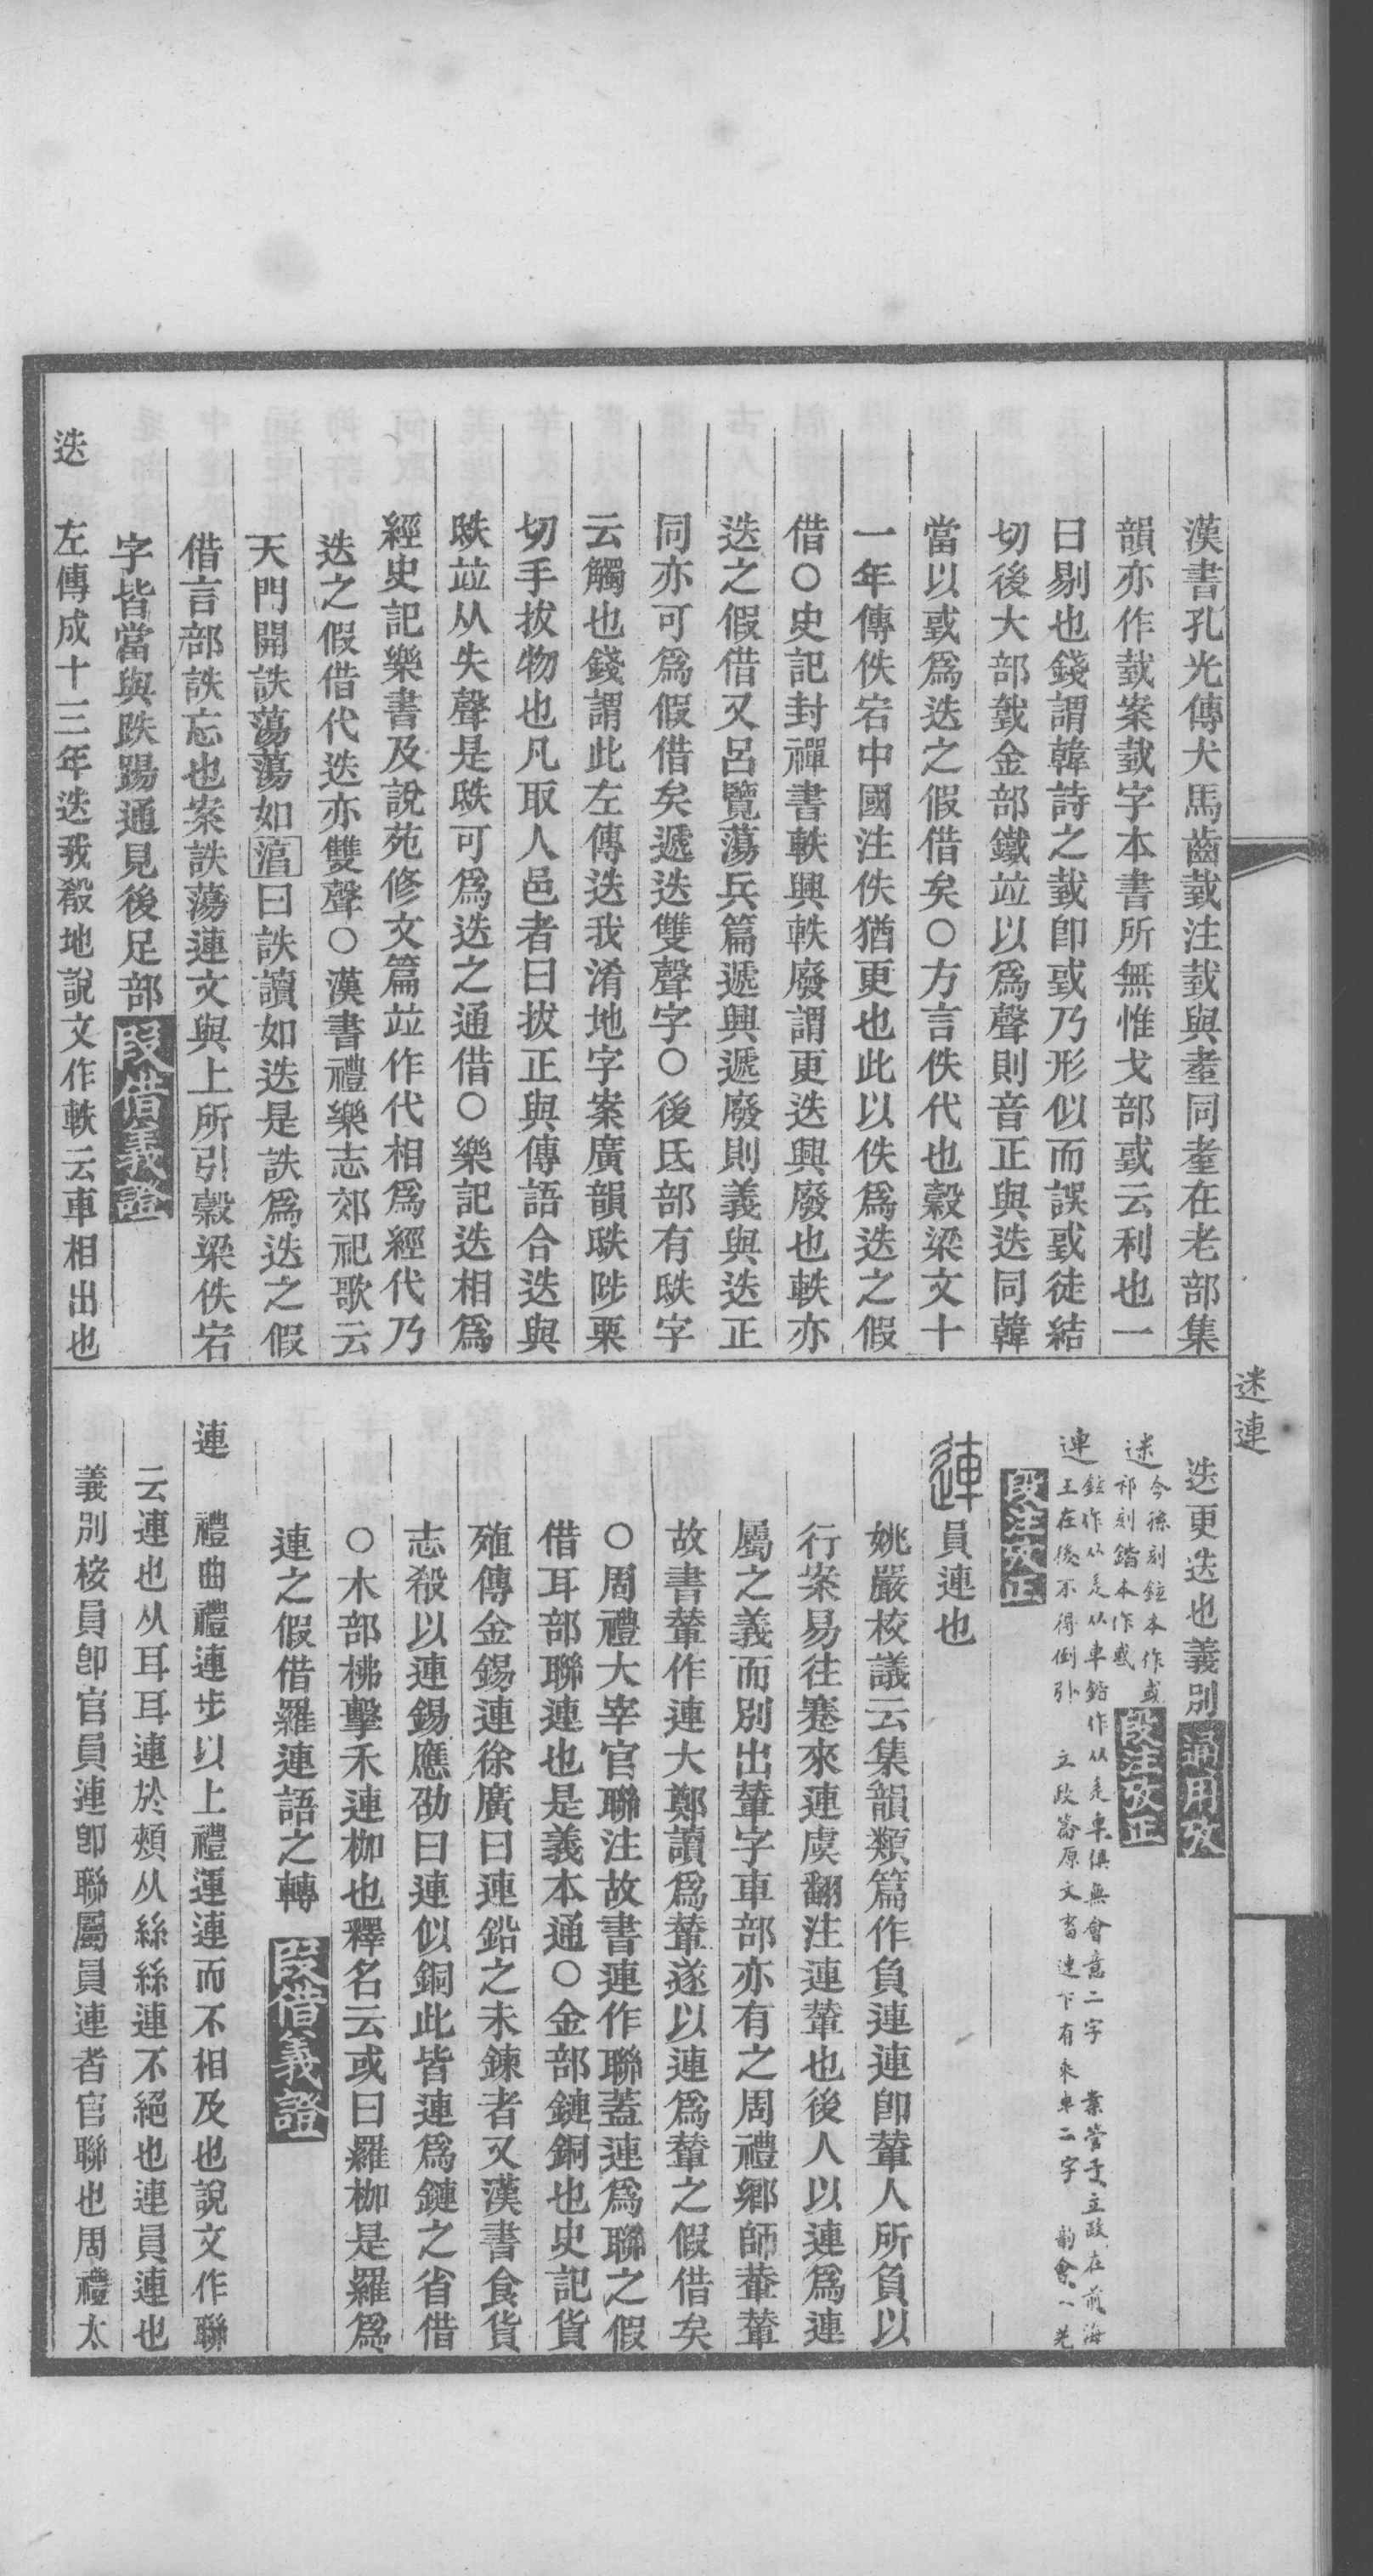 漢書孔光傳犬馬齒臷注臷與耊同耊在老部集
韻亦作臷案臷字本書所無惟戈部𢧜云利也一
曰剔也錢謂韓詩之臷卽𢧜乃形似而誤𢧜徒結
切後大部戴金部鐵竝以爲聲則音正與迭同韓
當以𢧜爲迭之假借矣○方言佚代也穀梁文十
一年傳佚宕中國注佚猶更也此以佚爲迭之假
借○史記封禪書軼興軼廢謂更迭興廢也軼亦
迭之假借又呂覽蕩兵篇遞興遞廢則義與迭正
同亦可爲假借矣遞迭雙聲字○後氏部有䟡字
云觸也錢謂此左傳迭我淆地字案廣韻䟡陟栗
切手拔物也凡取人邑者曰拔正與傳語合迭與
䟡竝从失聲是䟡可爲迭之通借○樂記迭相爲
經史記樂書及說苑修文篇竝作代相爲經代乃
迭之假借代迭亦雙聲○漢書禮樂志郊祀歌云
天門開詄蕩蕩如淳曰詄讀如迭是詄爲迭之假
借言部詄忘也案詄蕩連文與上所引穀梁佚宕
字皆當與跌踢通見後足部 叚借義證
迭 左傳成十三年迭我殽地說文作軼云車相出也
迷連
迭更迭也義別 通用攷
迷 今徐刻鉉本作或
祁刻鍇本作惑 段注攷正
連 鉉作从辵从車鍇作从辵車俱無會意二字 案管子立政在前海
王在後不得倒引 立政篇原文畜連下有乘車二字 韵會一先
段注攷正
連 員連也
姚嚴校議云集韻類篇作負連連卽輦人所負以
行案易往蹇來連虞翻注連輦也後人以連爲連
屬之義而別出輦字車部亦有之周禮鄉師輂輦
故書輦作連大鄭讀爲輦遂以連爲輦之假借矣
○周禮大宰官聯注故書連作聯蓋連爲聯之假
借耳部聯連也是義本通○金部鏈銅也史記貨
殖傳金錫連徐廣曰連鉛之未鍊者又漢書食貨
志殽以連錫應劭曰連似銅此皆連爲鏈之省借
○木部柫擊禾連枷也釋名云或曰羅枷是羅爲
連之假借羅連語之轉 叚借義證
連 禮曲禮連步以上禮運連而不相及也說文作聯
云連也从耳耳連於頰从絲絲連不絕也連員連也
義別桉員卽官員連卽聯屬員連者官聯也周禮太